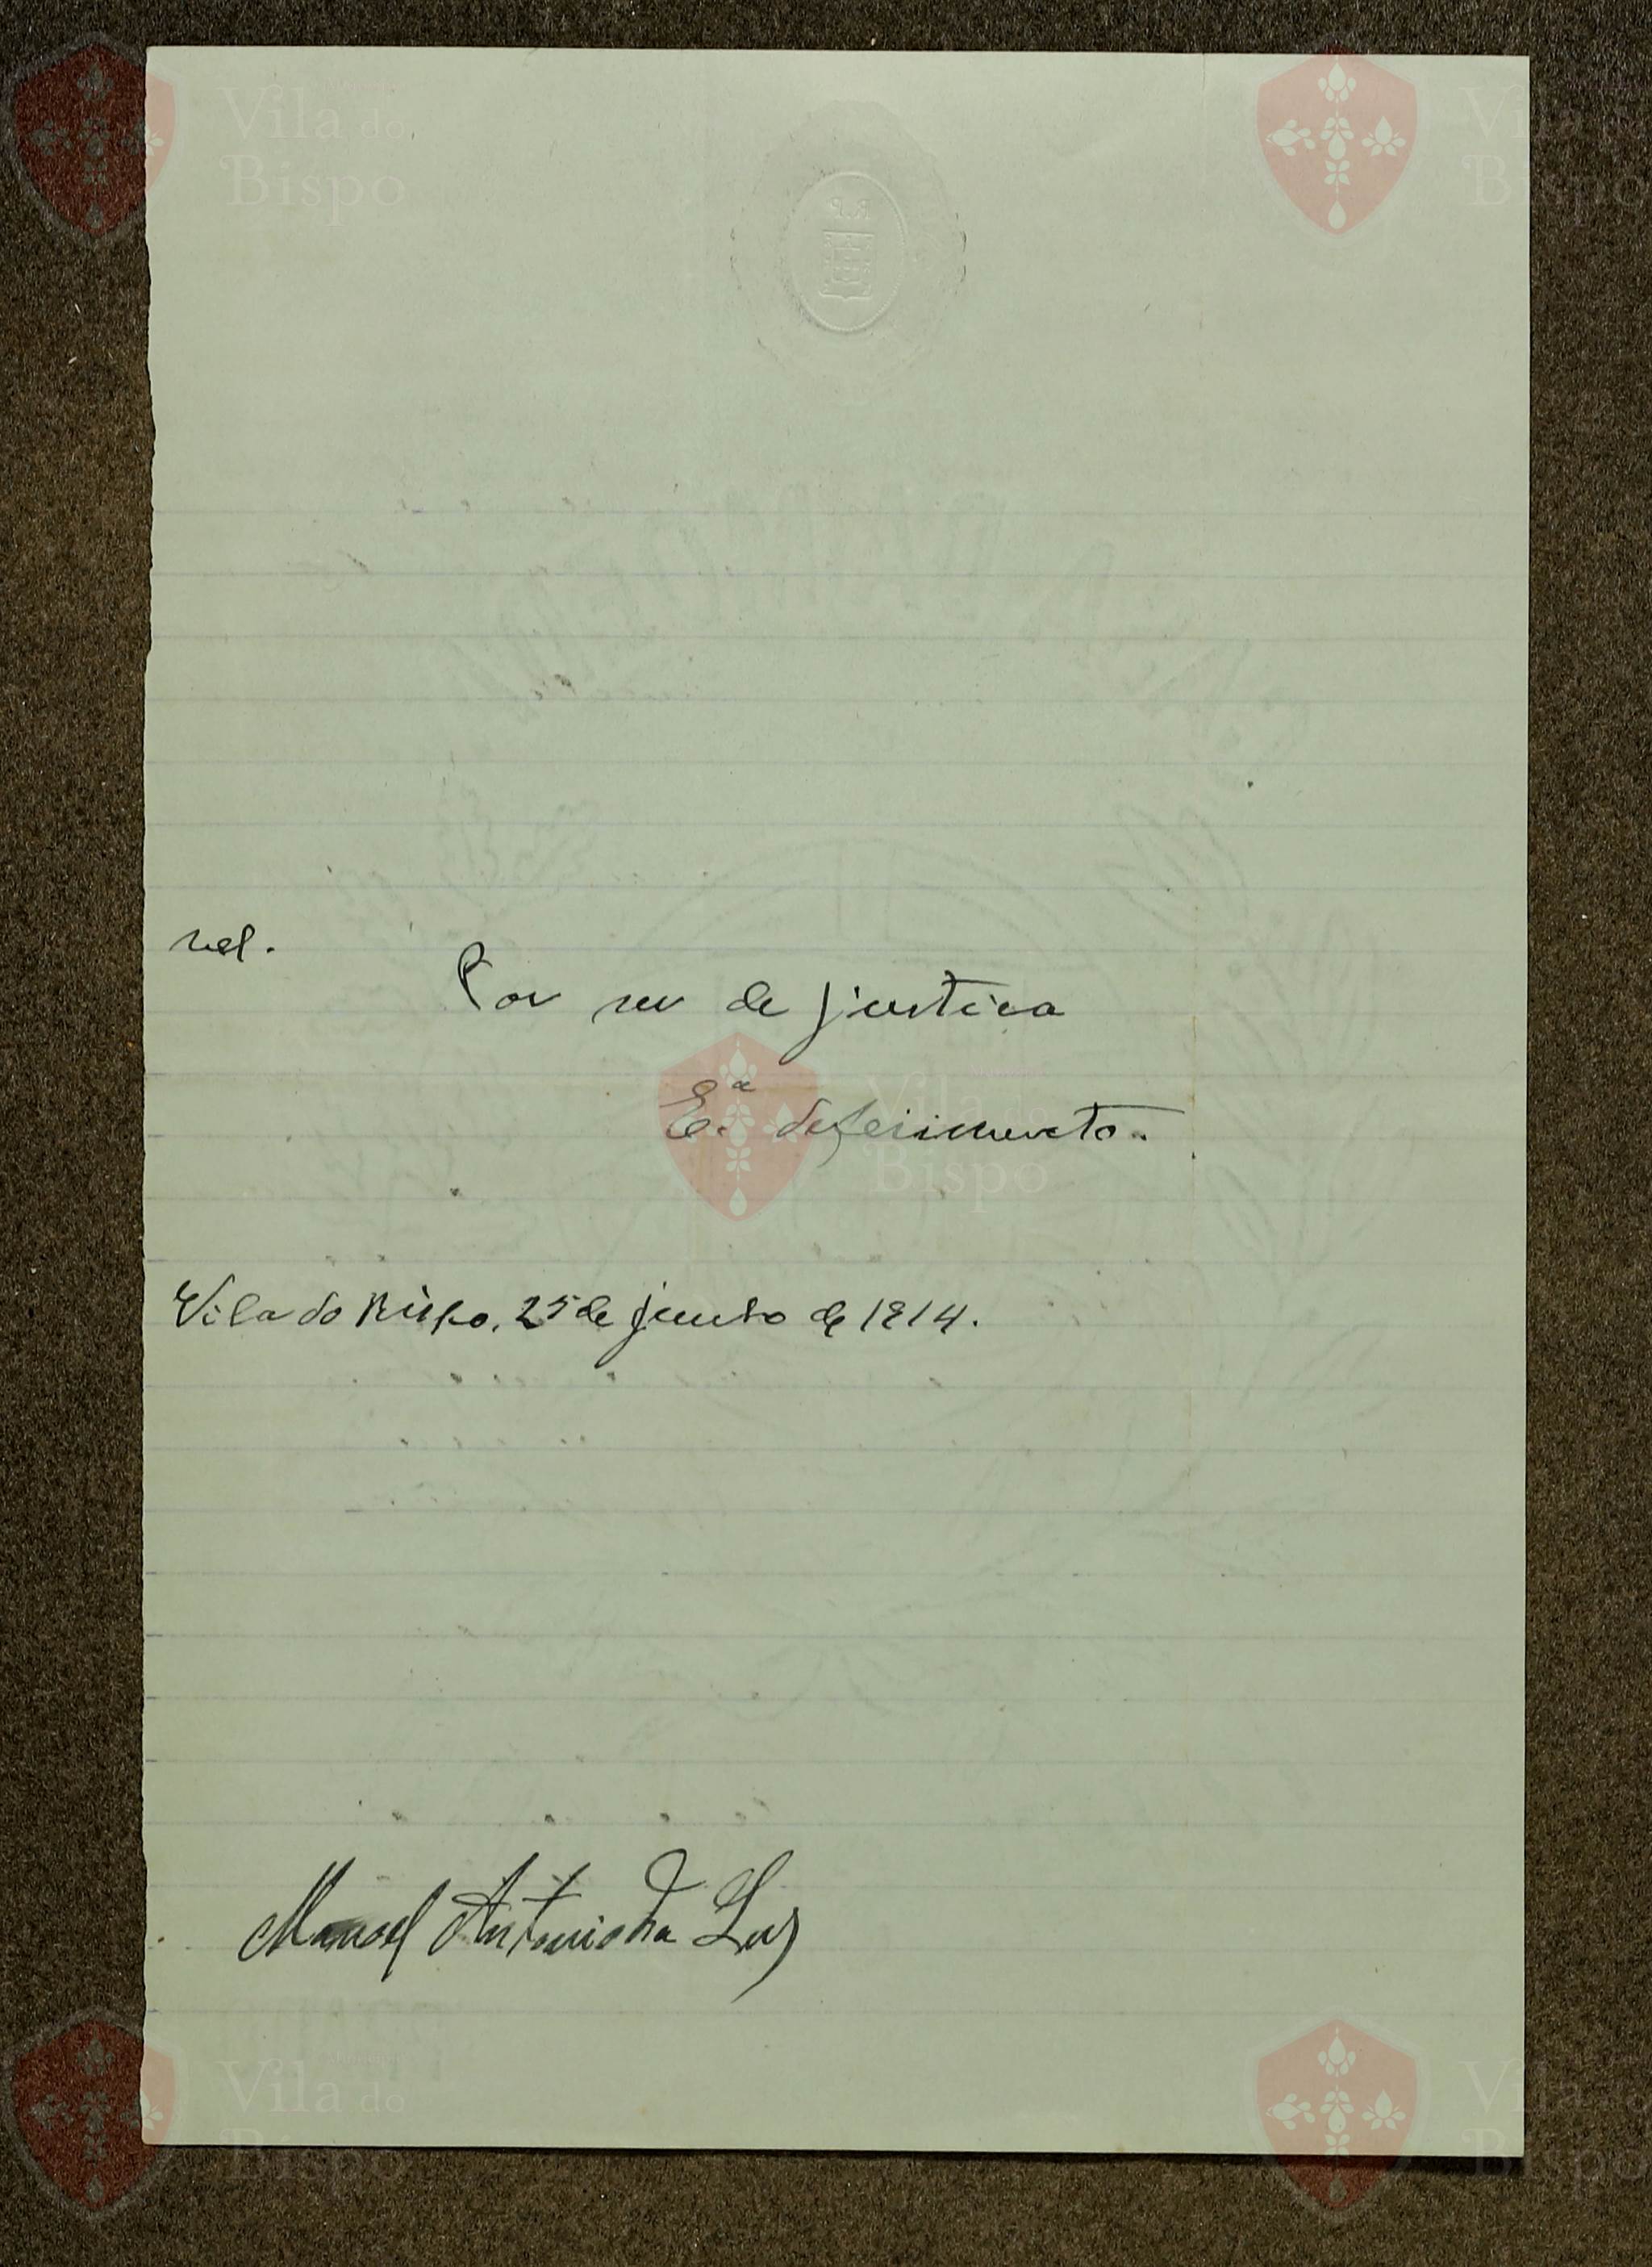 vel.
Por ser de justiça
E.ª deferimento.
Vila do Bispo, 25 de junho de 1914.
Manoel Antonio da Luz
Vila do
Bispo
Vila do
Bispo
Vila do
Bispo
Vila do
Bispo
Vila do
Bispo